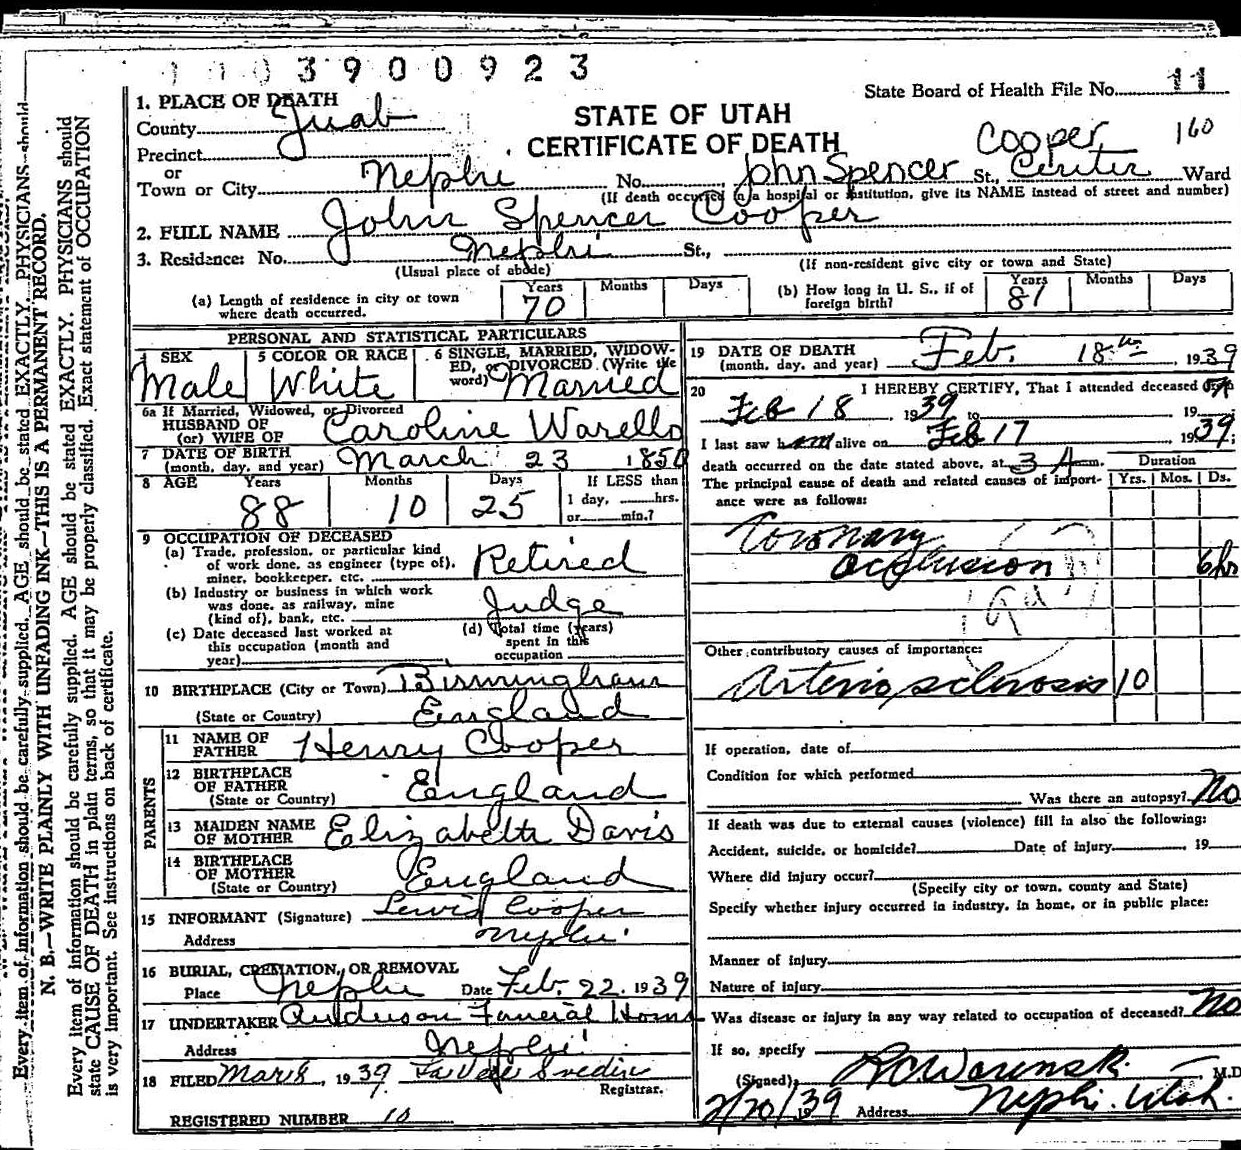 1 1 0 3 9 0 0 9 2 3
State Board of Health File No. 11
1. PLACE OF DEATH
STATE OF UTAH
CERTIFICATE OF DEATH
County Juab
Cooper 160
Precinct
or
Town or City Nephi No. John Spencer St., Center Ward
(If death occurred in a hospital or institution, give its NAME instead of street and number)
2. FULL NAME John Spencer Cooper
3. Residence: No. Nephi St.,
(Usual place of abode)
(If non-resident give city or town and State)
(a) Length of residence in city or town where death occurred. Years 70 Months Days
(b) How long in U. S., if of foreign birth? Years 81 Months Days
PERSONAL AND STATISTICAL PARTICULARS
4 SEX Male
5 COLOR OR RACE White
6 SINGLE, MARRIED, WIDOWED, or DIVORCED (Write the word) Married
6a If Married, Widowed, or Divorced
HUSBAND OF
(or) WIFE OF Caroline Warello
7 DATE OF BIRTH
(month, day, and year) March 23 1850
8 AGE Years 88 Months 10 Days 25 If LESS than
1 day, hrs.
or min.?
9 OCCUPATION OF DECEASED
(a) Trade, profession, or particular kind
of work done, as engineer (type of),
miner, bookkeeper, etc. Retired
(b) Industry or business in which work
was done, as railway, mine
(kind of), bank, etc. Judge
(c) Date deceased last worked at
this occupation (month and
year)
(d) Total time (years)
spent in this
occupation
10 BIRTHPLACE (City or Town) Birmingham
(State or Country) England
PARENTS
11 NAME OF
FATHER Henry Cooper
12 BIRTHPLACE
OF FATHER
(State or Country) England
13 MAIDEN NAME
OF MOTHER Elizabeth Davis
14 BIRTHPLACE
OF MOTHER
(State or Country) England
15 INFORMANT (Signature) Lewis Cooper
Address Nephi
16 BURIAL, CREMATION, OR REMOVAL
Place Nephi Date Feb. 22. 1939
17 UNDERTAKER Anderson Funeral Home
Address Nephi
18 FILED Mar 8, 1939
Registrar.
REGISTERED NUMBER 10
19 DATE OF DEATH
(month, day, and year) Feb. 18th, 1939
20 I HEREBY CERTIFY, That I attended deceased
Feb 18, 1939 to 19
I last saw him alive on Feb 17 1939;
death occurred on the date stated above, at 3 A m.
Duration
The principal cause of death and related causes of importance were as follows:
Yrs. Mos. Ds.
Coronary
occlusion 6 hr
Other contributory causes of importance:
Arterio sclerosis 10
If operation, date of
Condition for which performed
Was there an autopsy? No
If death was due to external causes (violence) fill in also the following:
Accident, suicide, or homicide? Date of injury 19
Where did injury occur?
(Specify city or town, county and State)
Specify whether injury occurred in industry, in home, or in public place:
Manner of injury
Nature of injury
Was disease or injury in any way related to occupation of deceased? No
If so, specify
(Signed) , M.D
2/20/1939 Address Nephi. Utah.
Every item of information should be carefully supplied. AGE should be stated EXACTLY. PHYSICIANS should
N. B.—WRITE PLAINLY WITH UNFADING INK—THIS IS A PERMANENT RECORD.
Every item of information should be carefully supplied. AGE should be stated EXACTLY. PHYSICIANS should
state CAUSE OF DEATH in plain terms, so that it may be properly classified. Exact statement of OCCUPATION
is very important. See instructions on back of certificate.